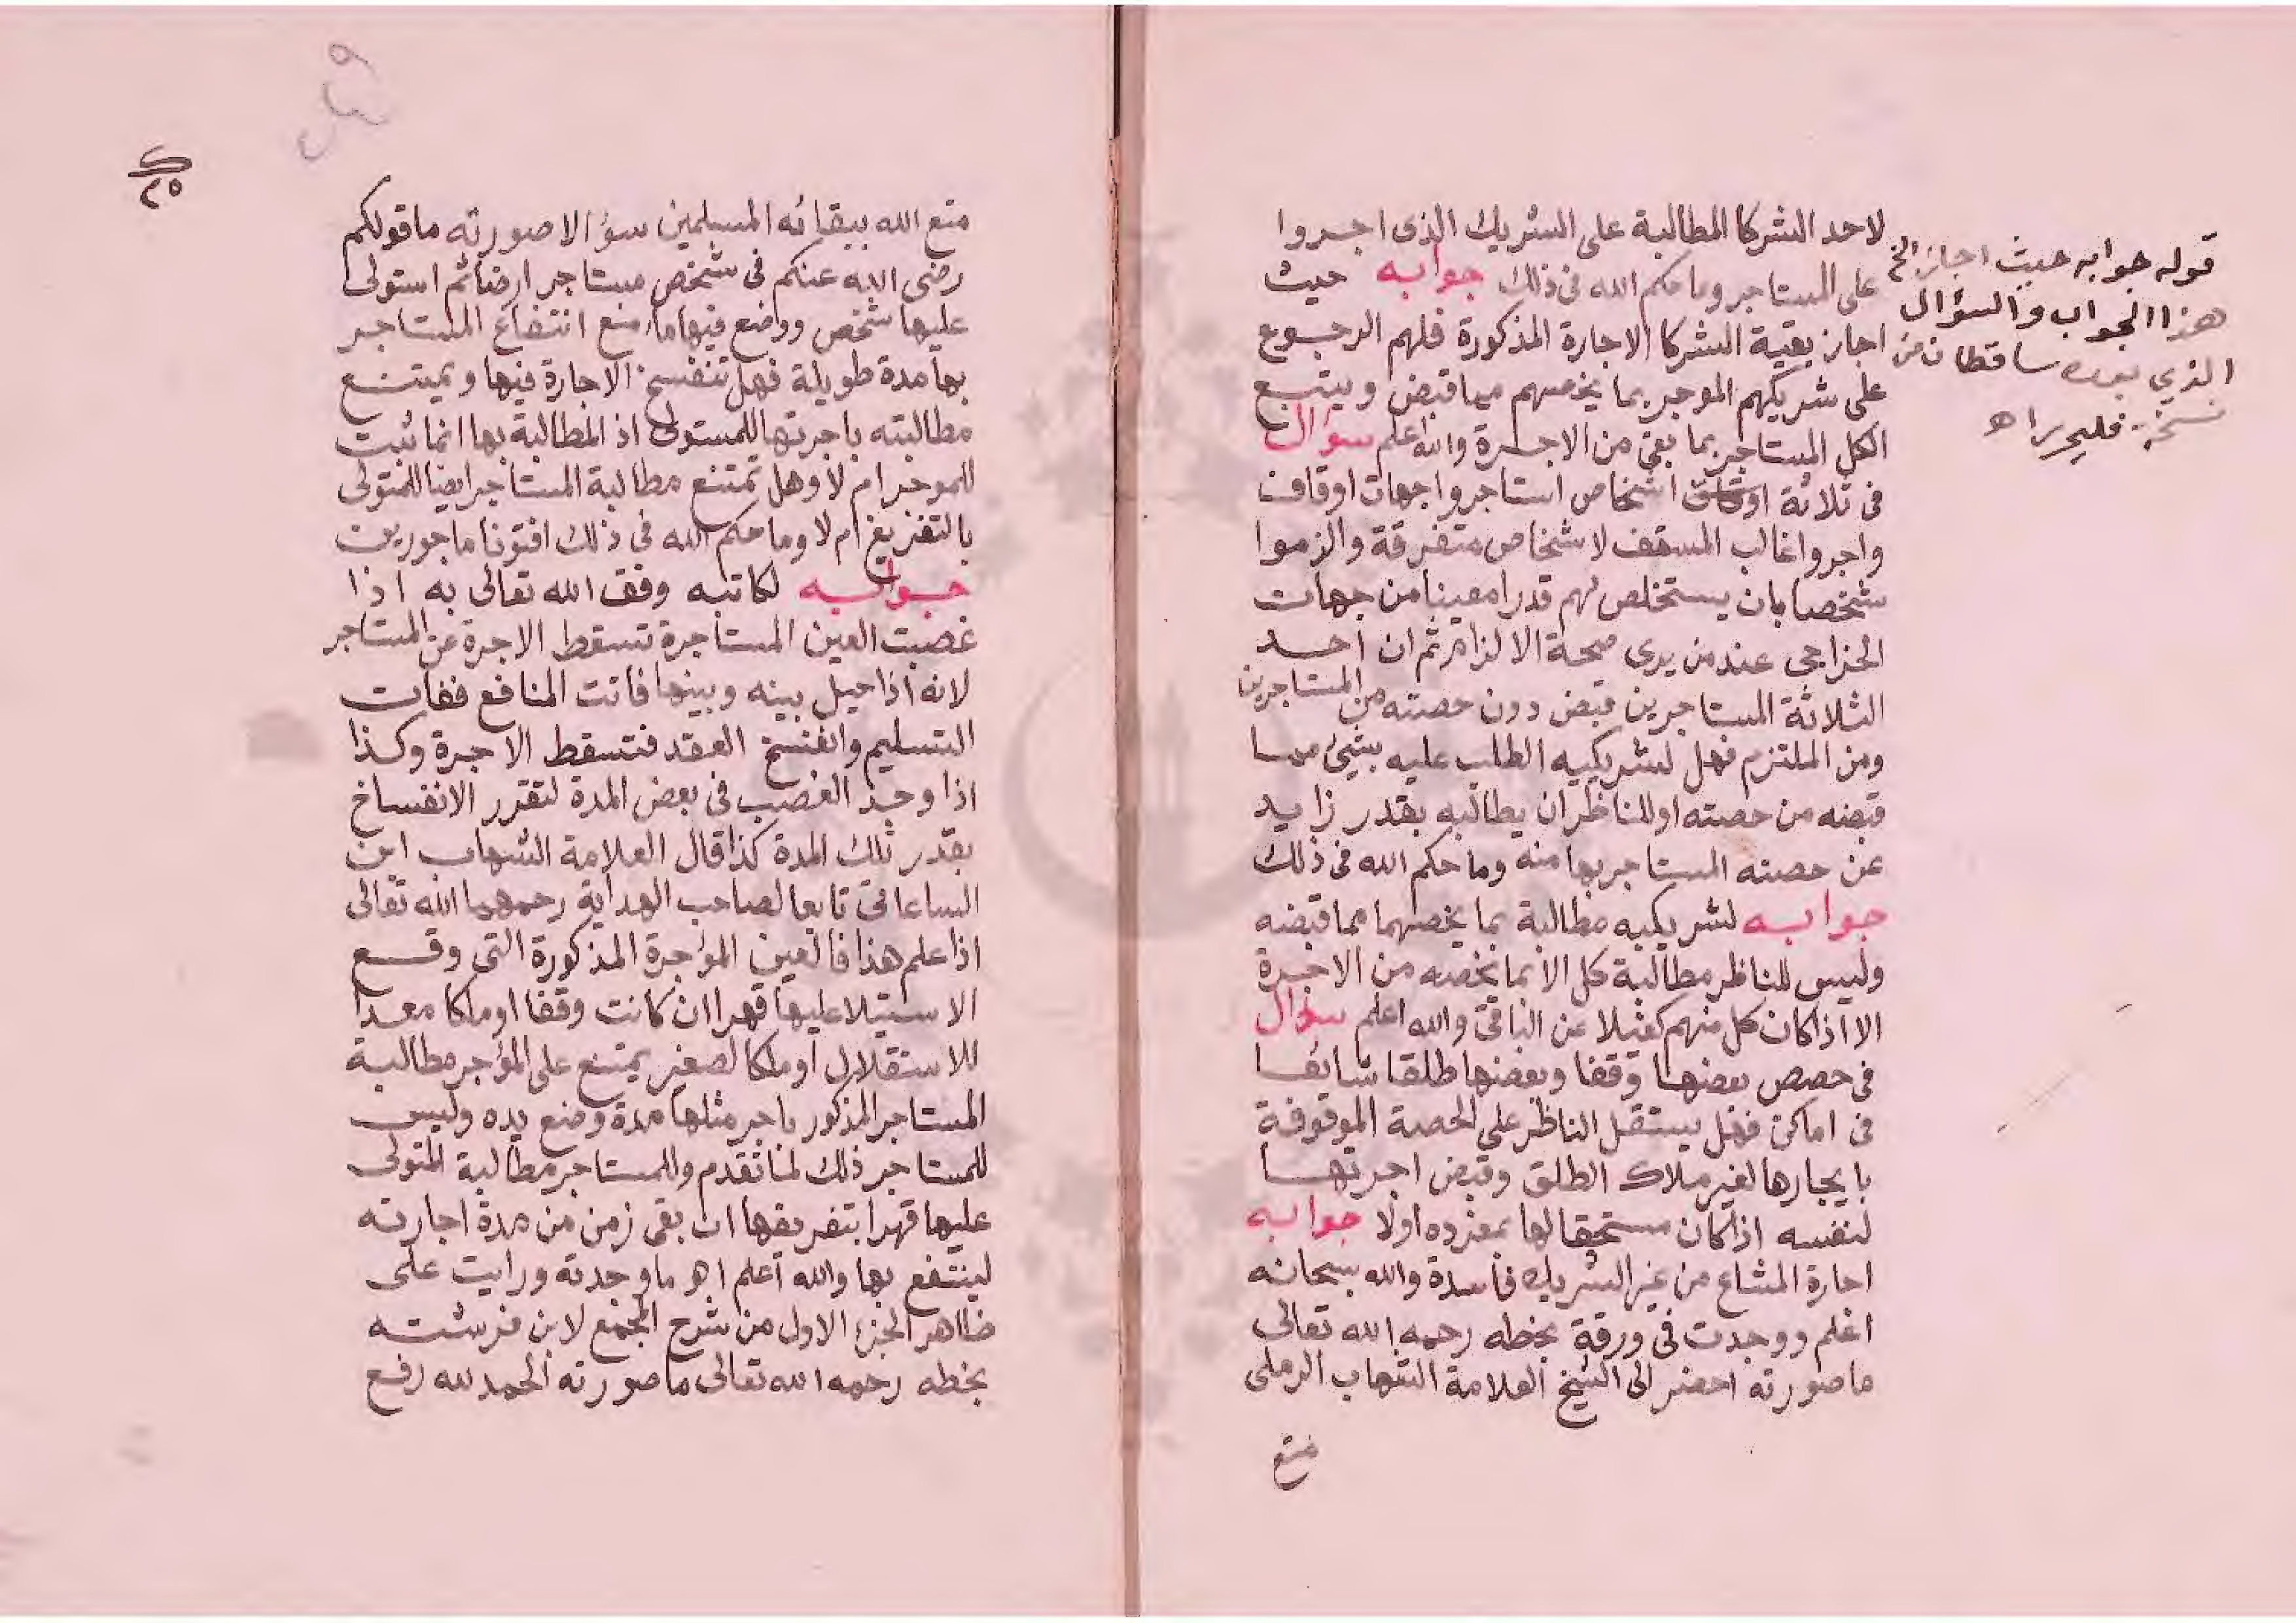 لاحد الشركا المطالبة على الشريك الذى اجروا
على المستاجر وما حكم الله فى ذلك جوابه حيث
اجاز بقية الشركا الاجارة المذكورة فلهم الرجوع
على شريكهم الموجر بما يخصهم مما قبض ويتبع
الكل المستاجر بما بقى من الاجرة والله اعلم سؤال
فى ثلاثة اشخاص استاجروا جهات اوقاف
واجروا غالب المسقف لاشخاص متفرقة والزموا
شخصا بان يستخلص لهم قدرا معينا من جهات
الخراجى عند من يرى صحة الالزام ثم ان احد
الثلاثة المستاجرين قبض دون حصته من المستاجرين
ومن الملتزم فهل لشريكيه الطلب عليه بشيئ مما
قبضه من حصته او للناظر ان يطالبه بقدر زايد
عن حصته المستاجر بها منه وما حكم الله فى ذلك
جوابه لشريكيه مطالبة بما يخصهما مما قبضه
وليس للناظر مطالبة كل الا بما يخصه من الاجرة
الا اذا كان كل منهم كفيلا عن الباقى والله اعلم سؤال
فى حصص بعضها وقفا وبعضها طلقا شائعا
فى اماكن فهل يستقل الناظر على الحصة الموقوفة
بايجارها لغير ملاك الطلق وقبض اجرتها
لنفسه اذا كان مستحقا لها بمفرده اولا جوابه
اجارة المشاع من غير الشريك فاسدة والله سبحانه
اعلم ووجدت فى ورقة بخطه رحمه الله تعالى
ما صورته احضر الى الشيخ العلامة الشهاب الرملى
متع
قوله جوابه حيث اجاز الخ
هذا الجواب والسؤال
الذي بعده ساقطان من
نسخة فليحرر اه
٢٥
متع الله ببقائه المسلمين سؤالا صورته ما قولكم
رضى الله عنكم فى شخص مستاجر ارضا ثم استولى
عليها شخص ووضع فيها ما منع انتفاع المستاجر
بها مدة طويلة فهل تنفسخ الاجارة فيها ويمتنع
مطالبته باجرتها للمستولى اذ المطالبة بها انما ثبت
للموجر ام لا وهل تمتنع مطالبة المستاجر ايضا للمتولى
بالتفريغ ام لا وما حكم الله فى ذلك افتونا ماجورين
جوابه لكاتبه وفق الله تعالى به اذا
غصبت العين المستاجرة تسقط الاجرة عن المستاجر
لانه اذا حيل بينه وبينها فاتت المنافع ففات
التسليم وانفسخ العقد فتسقط الاجرة وكذا
اذا وجد الغصب فى بعض المدة لتقرر الانفساخ
بقدر تلك المدة كذا قال العلامة الشهاب ابن
الساعاتى تابعا لصاحب الهداية رحمهما الله تعالى
اذا علم هذا فالعين المؤجرة المذكورة التى وقع
الاستيلا عليها قهرا ان كانت وقفا او ملكا معدا
للاستقلال او ملكا لصغير يمتنع على المؤجر مطالبة
المستاجر المذكور باجر مثلها مدة وضع يده وليس
للمستاجر ذلك لما تقدم وللمستاجر مطالبة المتولى
عليها قهرا بتفريغها ان بقى زمن من مدة اجارته
لينتفع بها والله اعلم اه ما وجدته ورايت على
ظاهر الجزء الاول من شرح المجمع لابن فرشته
بخطه رحمه الله تعالى ما صورته الحمد لله رفع